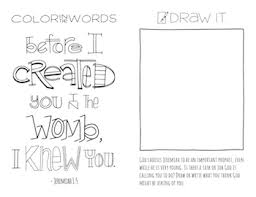 COLOR THE WORDS
before I
CREATED
you IN the
Womb,
I KNEW YOU.
- JEREMIAH 1:5
DRAW IT
GOD CHOOSES JEREMIAH TO BE AN IMPORTANT PROPHET, EVEN
WHILE HE IS VERY YOUNG. IS THERE A TASK OR JOB GOD IS
CALLING YOU TO DO? DRAW OR WRITE WHAT YOU THINK GOD
MIGHT BE ASKING OF YOU.